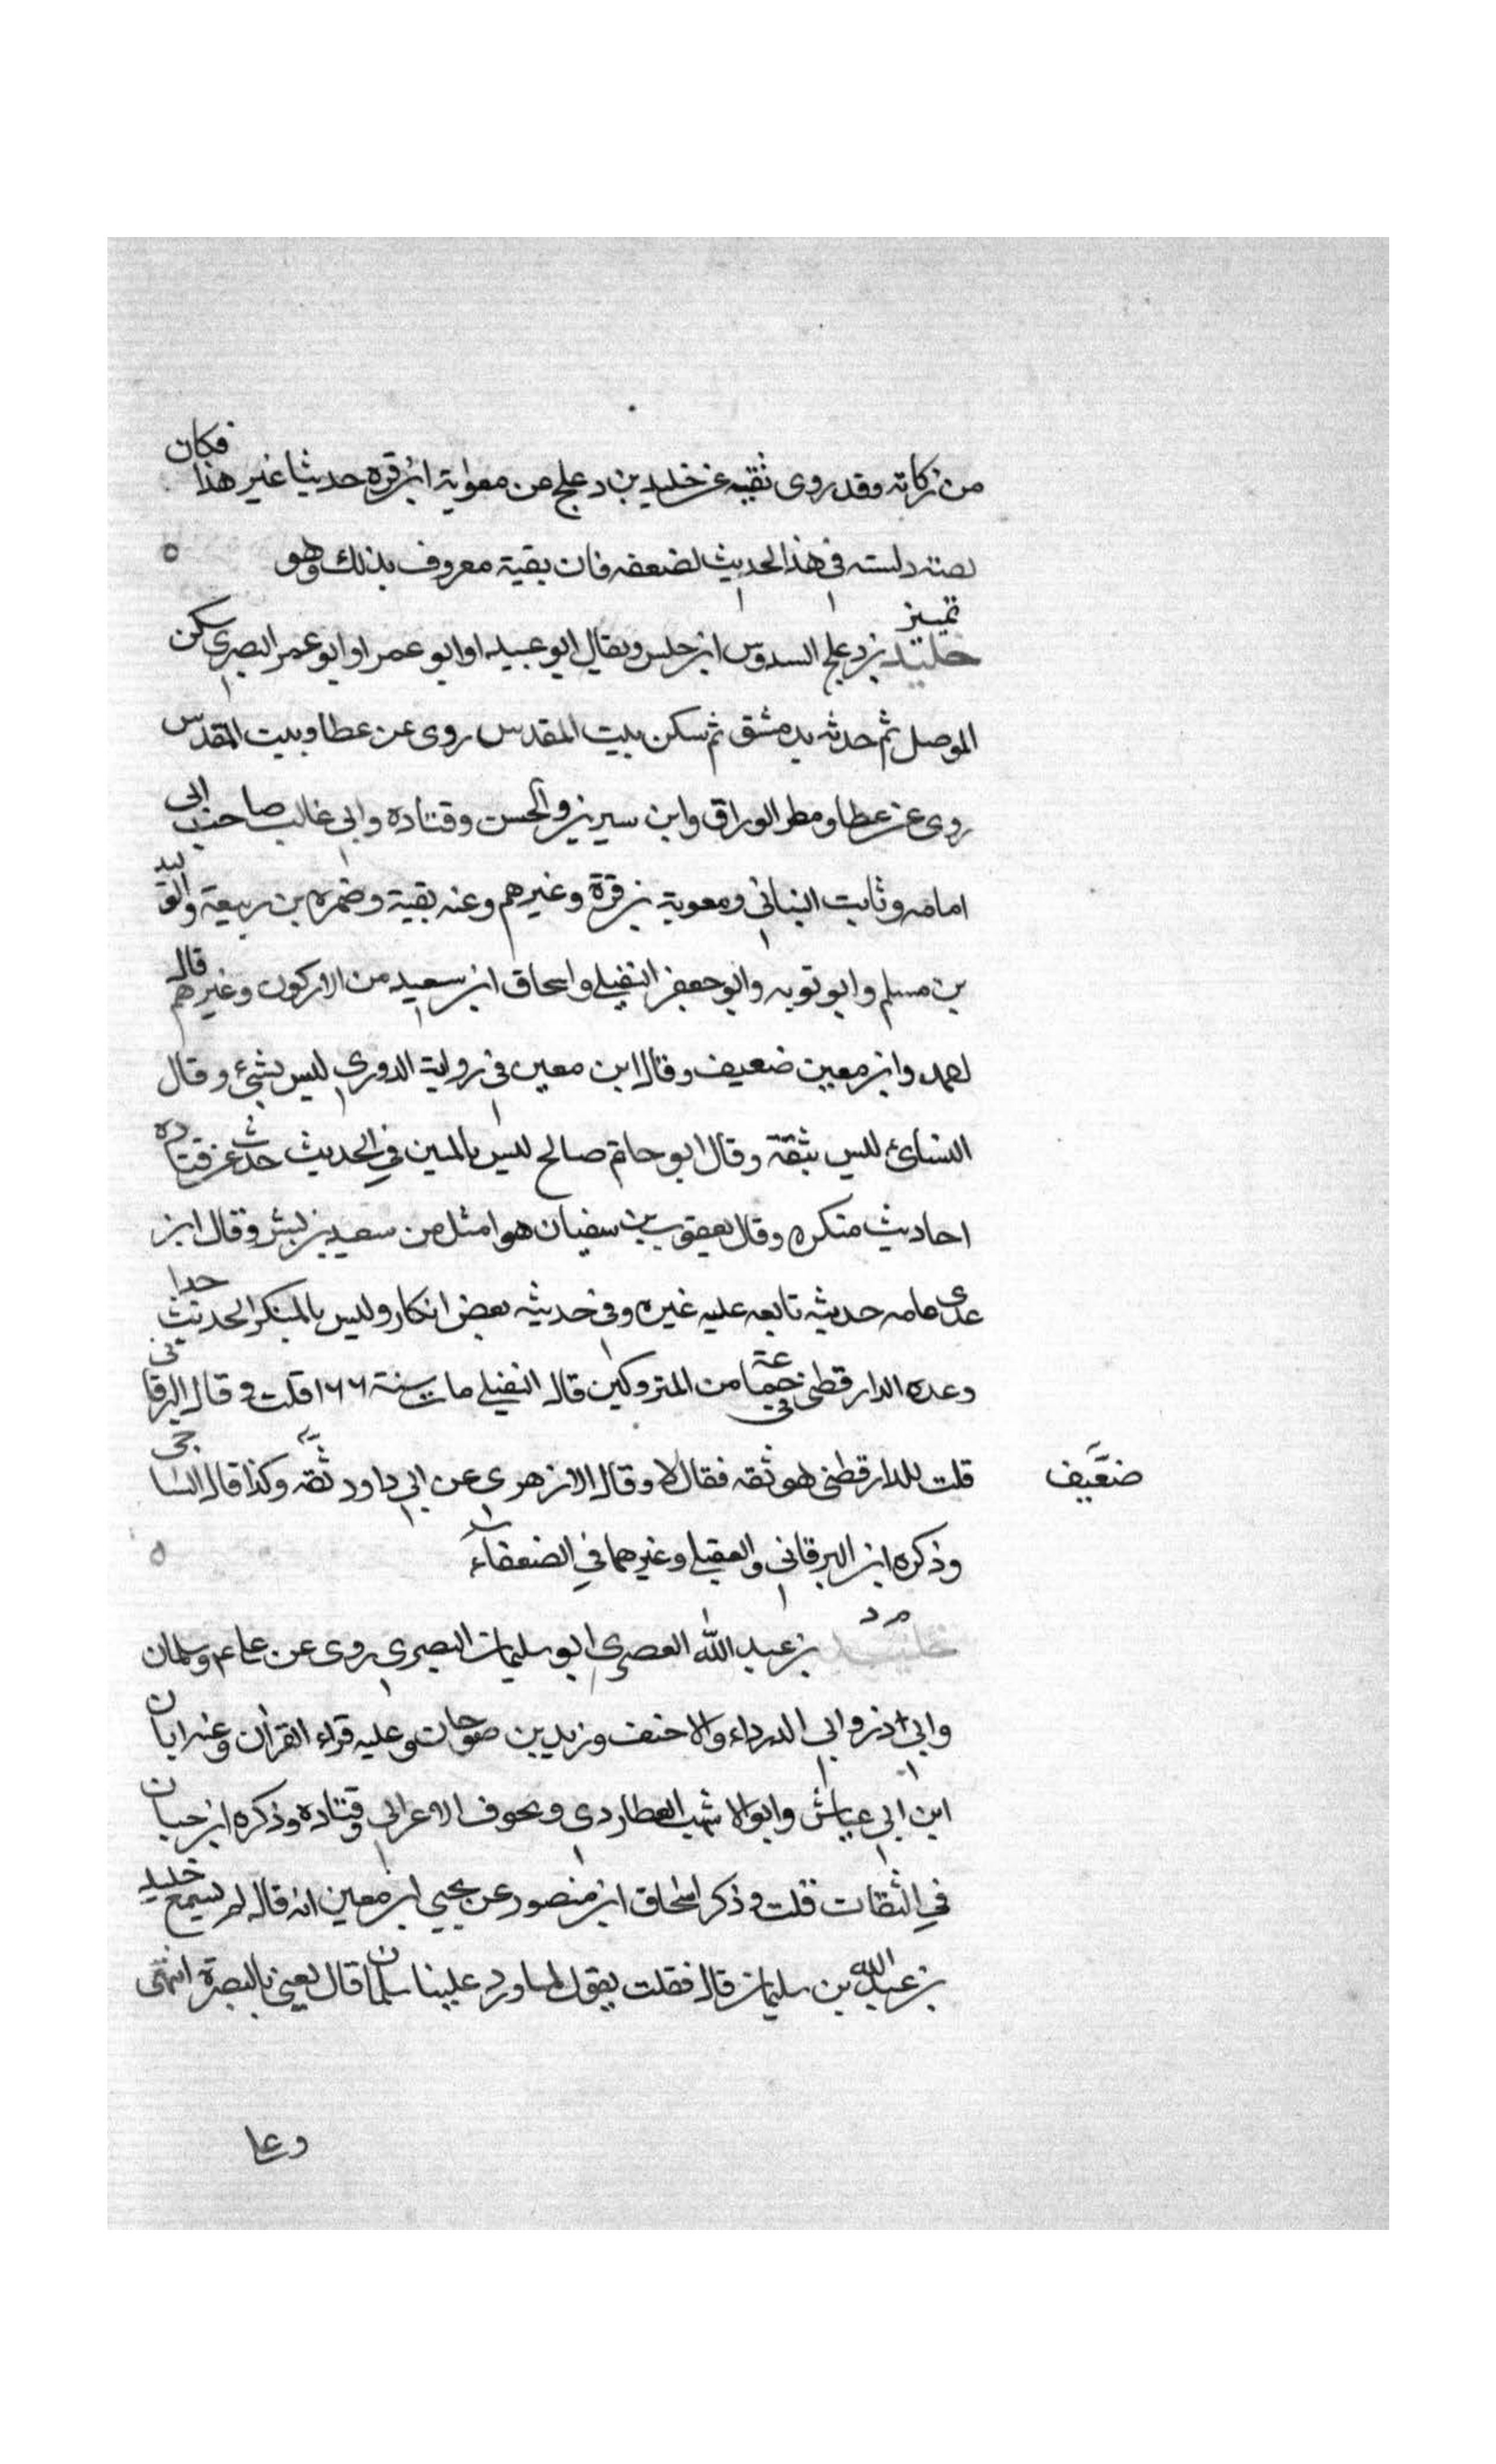 من زكاته وقد روى ثقيه عن خليد بن دعلج عن معوية ابن قره حديثا غير هذا فكان
دلسته في هذا الحديث لضعفه فان بقية معروف بذلك وهو ه
تمييز
خليد بن دعلج السدوسي ابو حلس ويقال ابو عبيد او ابو عمر او ابو عمر البصري سكن
الموصل ثم حدث بدمشق ثم سكن بيت المقدس روى عن عطا وبيت المقدس
روى عن عطا ومطر الوراق وابن سيرين والحسن وقتاده وابي غالب صاحب ابي
امامه وثابت البناني ومعوية بن قرة وغيرهم وعنه بقية وضمره بن ربيعة والوليد
بن مسلم وابو توبه وابو جعفر النفيلي واسحاق ابن سعيد من الاركون وغيرهم قال
احمد وابن معين ضعيف وقال ابن معين في رواية الدوري ليس بشيء وقال
النسائي ليس بثقة وقال ابو حاتم صالح ليس بالمتين في الحديث حدث عن قتاده
احاديث منكره وقال يعقوب بن سفيان هو امثل من سعيد بن بشر وقال ابن
عدي عامه حديثه تابعه عليه غيره وفي حديثه بعض انكار وليس بالمنكر الحديث جدا
وعده الدارقطني في جماعة من المتروكين قال النفيلي مات سنة ١٦٦ قلت وقال البرقاني
قلت للدارقطني هو ثقه فقال لا وقال الازهري عن ابي داود ثقه وكذا قال الساجي
ضعيف
وذكره ابن البرقاني والعقيلي وغيرهما في الضعفاء ه
م د
خليد بن عبد الله العصري ابو سليمان البصري روى عن علي وسلمان
وابي ذر وابي الدرداء والاحنف وزيد بن صوحان وعليه قراء القران وعنه ابان
ابن ابي عياش وابو الاشهب العطاردي وعوف الاعرابي وقتاده وذكره ابن حبان
في الثقات قلت وذكر اسحاق ابن منصور عن يحيى ابن معين انه قال لم يسمع خليد
بن عبد الله بن سليمان قال فقلت يقول لما ورد علينا سلمان قال يعني بالبصرة انتهى